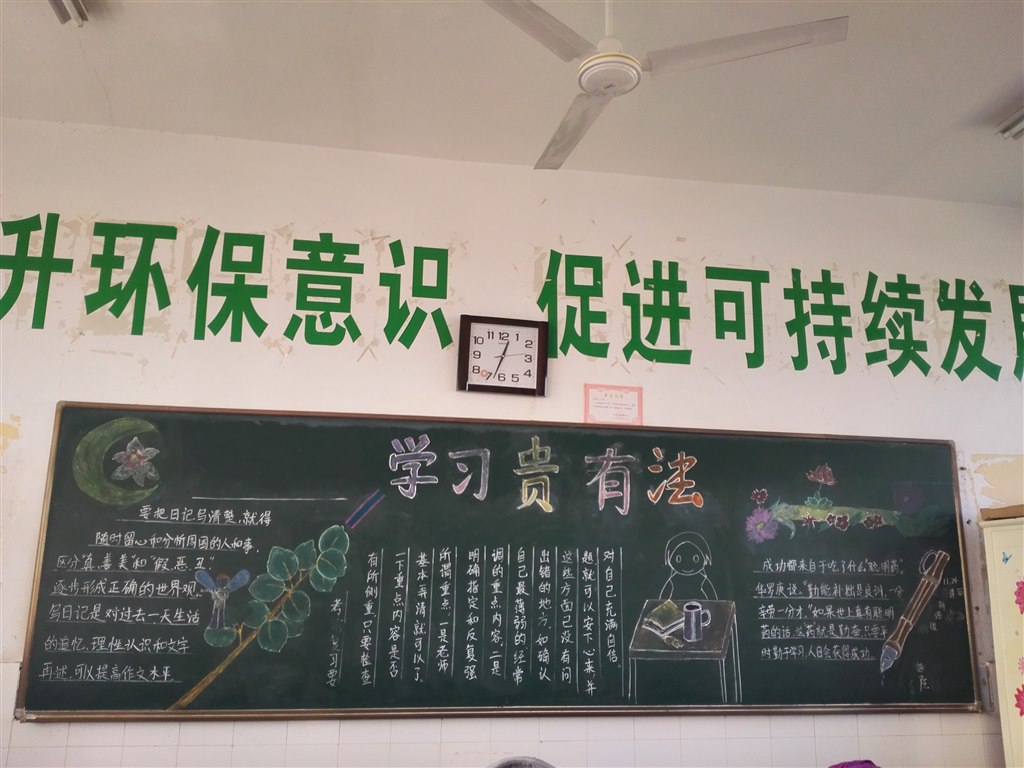 升环保意识 促进可持续发展
11 12 1
10 2
9 3
8 4
7 6 5
学习贵有法
要把日记写清楚,就得
随时留心和分析周围的人和事.
区分“真、善、美”和“假、恶、丑”
逐步形成正确的世界观.
写日记是对过去一天生活
的追忆、理性认识和文字
再述,可以提高作文水平.
考前复习要
有所侧重,只要检查
一下重点内容是否
基本弄清就可以了.
所谓重点,一是老师
明确指定和反复强
调的重点内容,二是
自己最薄弱的、经常
出错的地方.如确认
这些方面已没有问
题,就可以安下心来,并
对自己充满自信.
成功都来自于吃了什么“聪明药”
华罗庚说“勤能补拙是良训,一分
辛劳一分才”如果世上真有聪明
药的话,这药就是勤奋.只要平
时勤于学习,人自会获得成功.